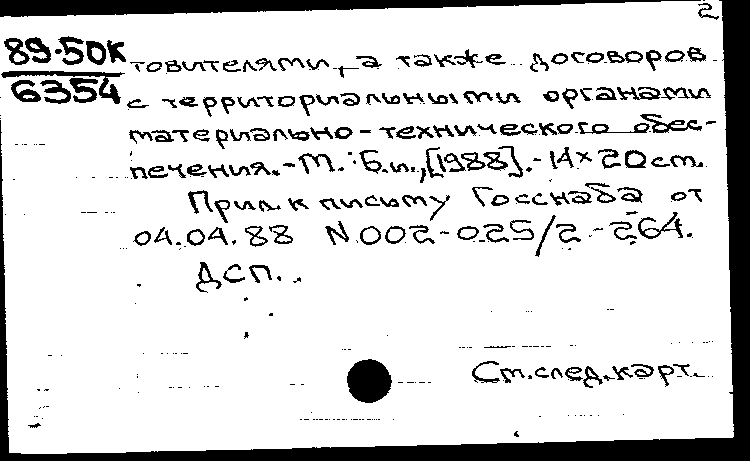 2
89-50К
6354
товителями, а также договоров
с территориальными органами
материально-технического обес-
печения.-М.:Б.и.,[1988].-14×20см.
Прил.к письму Госснаба от
04.04.88 N 002-025/2-264.
ДСП.
См.след.карт.